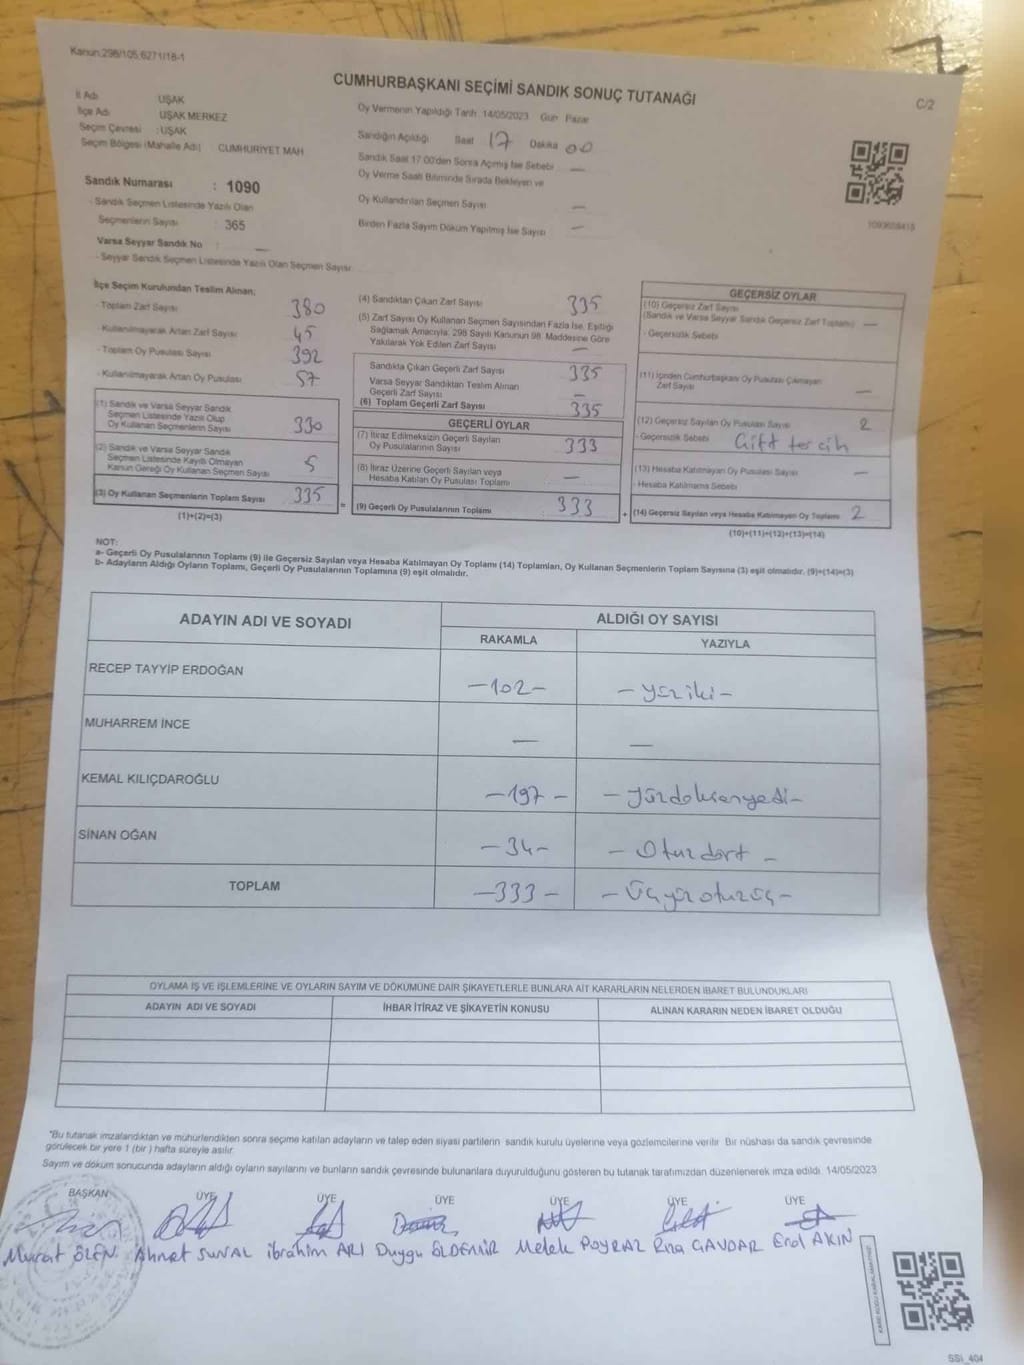 Kanun:298/105,6271/18-1
CUMHURBAŞKANI SEÇİMİ SANDIK SONUÇ TUTANAĞI
C/2
İl Adı UŞAK
İlçe Adı UŞAK MERKEZ
Seçim Çevresi : UŞAK
Seçim Bölgesi (Mahalle Adı) CUMHURİYET MAH
Sandık Numarası : 1090
- Sandık Seçmen Listesinde Yazılı Olan
Seçmenlerin Sayısı : 365
Varsa Seyyar Sandık No : —
- Seyyar Sandık Seçmen Listesinde Yazılı Olan Seçmen Sayısı
Oy Vermenin Yapıldığı Tarih 14/05/2023 Gün Pazar
Sandığın Açıldığı Saat 17 Dakika 00
Sandık Saat 17.00'den Sonra Açılmış İse Sebebi —
Oy Verme Saati Bitiminde Sırada Bekleyen ve
Oy Kullandırılan Seçmen Sayısı —
Birden Fazla Sayım Döküm Yapılmış İse Sayısı —
İlçe Seçim Kurulundan Teslim Alınan;
- Toplam Zarf Sayısı 380
- Kullanılmayarak Artan Zarf Sayısı 45
- Toplam Oy Pusulası Sayısı 392
- Kullanılmayarak Artan Oy Pusulası 57
(1) Sandık ve Varsa Seyyar Sandık
Seçmen Listesinde Yazılı Olup
Oy Kullanan Seçmenlerin Sayısı 330
(2) Sandık ve Varsa Seyyar Sandık
Seçmen Listesinde Kayıtlı Olmayan
Kanun Gereği Oy Kullanan Seçmen Sayısı 5
(3) Oy Kullanan Seçmenlerin Toplam Sayısı 335
(1)+(2)=(3)
(4) Sandıktan Çıkan Zarf Sayısı 335
(5) Zarf Sayısı Oy Kullanan Seçmen Sayısından Fazla İse, Eşitliği
Sağlamak Amacıyla; 298 Sayılı Kanunun 98. Maddesine Göre
Yakılarak Yok Edilen Zarf Sayısı —
Sandıkta Çıkan Geçerli Zarf Sayısı 335
Varsa Seyyar Sandıktan Teslim Alınan
Geçerli Zarf Sayısı —
(6) Toplam Geçerli Zarf Sayısı 335
GEÇERLİ OYLAR
(7) İtiraz Edilmeksizin Geçerli Sayılan
Oy Pusulasının Sayısı 333
(8) İtiraz Üzerine Geçerli Sayılan veya
Hesaba Katılan Oy Pusulası Toplamı —
= (9) Geçerli Oy Pusulalarının Toplamı 333
GEÇERSİZ OYLAR
(10) Geçersiz Zarf Sayısı
(Sandık ve Varsa Seyyar Sandık Geçersiz Zarf Toplamı) —
- Geçersizlik Sebebi
(11) İçinden Cumhurbaşkanı Oy Pusulası Çıkmayan
Zarf Sayısı —
(12) Geçersiz Sayılan Oy Pusulası Sayısı 2
- Geçersizlik Sebebi Çift tercih
(13) Hesaba Katılmayan Oy Pusulası Sayısı —
- Hesaba Katılmama Sebebi
+ (14) Geçersiz Sayılan veya Hesaba Katılmayan Oy Toplamı 2
(10)+(11)+(12)+(13)=(14)
NOT:
a- Geçerli Oy Pusulalarının Toplamı (9) ile Geçersiz Sayılan veya Hesaba Katılmayan Oy Toplamı (14) Toplamları, Oy Kullanan Seçmenlerin Toplam Sayısına (3) eşit olmalıdır. (9)+(14)=(3)
b- Adayların Aldığı Oyların Toplamı, Geçerli Oy Pusulalarının Toplamına (9) eşit olmalıdır.
ADAYIN ADI VE SOYADI ALDIĞI OY SAYISI
RAKAMLA YAZIYLA
RECEP TAYYİP ERDOĞAN -102- - yüziki -
MUHARREM İNCE — —
KEMAL KILIÇDAROĞLU -197- - yüzdoksanyedi -
SİNAN OĞAN -34- - Otuzdört -
TOPLAM -333- - Üçyüzotuzüç -
OYLAMA İŞ VE İŞLEMLERİNE VE OYLARIN SAYIM VE DÖKÜMÜNE DAİR ŞİKAYETLERLE BUNLARA AİT KARARLARIN NELERDEN İBARET BULUNDUKLARI
ADAYIN ADI VE SOYADI İHBAR İTİRAZ VE ŞİKAYETİN KONUSU ALINAN KARARIN NEDEN İBARET OLDUĞU
*Bu tutanak imzalandıktan ve mühürlendikten sonra seçime katılan adayların ve talep eden siyasi partilerin sandık kurulu üyelerine veya gözlemcilerine verilir. Bir nüshası da sandık çevresinde
görülecek bir yere 1 (bir) hafta süreyle asılır.
Sayım ve döküm sonucunda adayların aldığı oyların sayılarını ve bunların sandık çevresinde bulunanlara duyurulduğunu gösteren bu tutanak tarafımızdan düzenlenerek imza edildi. 14/05/2023
BAŞKAN ÜYE ÜYE ÜYE ÜYE ÜYE ÜYE
Murat ÖZEN Ahmet SUNAL İbrahim ARI Duygu ÖLDEMİR Melek POYRAZ Rıza ÇAVDAR Erol AKIN
SSİ_404